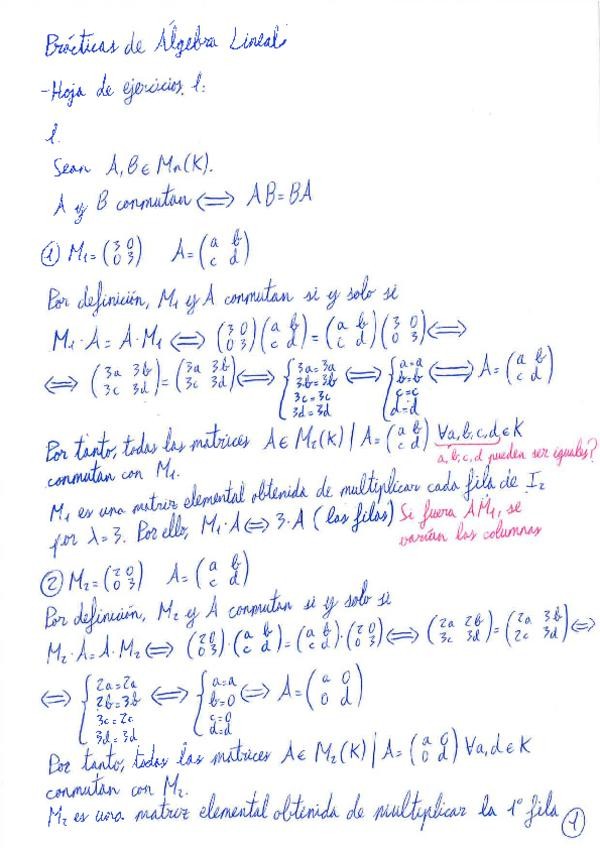 Prácticas de Álgebra Lineal.
-Hoja de ejercicios 1:
1.
Sean A, B ∈ Mn(K).
A y B conmutan ⟺ AB = BA
① M₁ = (3 0; 0 3) A = (a b; c d)
Por definición, M₁ y A conmutan si y solo si
M₁·A = A·M₁ ⟺ (3 0; 0 3)(a b; c d) = (a b; c d)(3 0; 0 3) ⟺
⟺ (3a 3b; 3c 3d) = (3a 3b; 3c 3d) ⟺ {3a=3a 3b=3b 3c=3c 3d=3d ⟺ {a=a b=b c=c d=d ⟺ A = (a b; c d)
Por tanto, todas las matrices A ∈ M₂(K) | A = (a b; c d) ∀a,b,c,d ∈ K
a,b,c,d pueden ser iguales?
conmutan con M₁.
M₁ es una matriz elemental obtenida de multiplicar cada fila de I₂
por λ=3. Por ello, M₁·A ⟺ 3·A (las filas) Si fuera AM₁, se
varían las columnas
② M₂ = (2 0; 0 3) A = (a b; c d)
Por definición, M₂ y A conmutan si y solo si
M₂·A = A·M₂ ⟺ (2 0; 0 3)·(a b; c d) = (a b; c d)·(2 0; 0 3) ⟺ (2a 2b; 3c 3d) = (2a 3b; 2c 3d) ⟺
⟺ {2a=2a 2b=3b 3c=2c 3d=3d ⟺ {a=a b=0 c=0 d=d ⟺ A = (a 0; 0 d)
Por tanto, todas las matrices A ∈ M₂(K) | A = (a 0; 0 d) ∀a,d ∈ K
conmutan con M₂.
M₂ es una matriz elemental obtenida de multiplicar la 1º fila
1